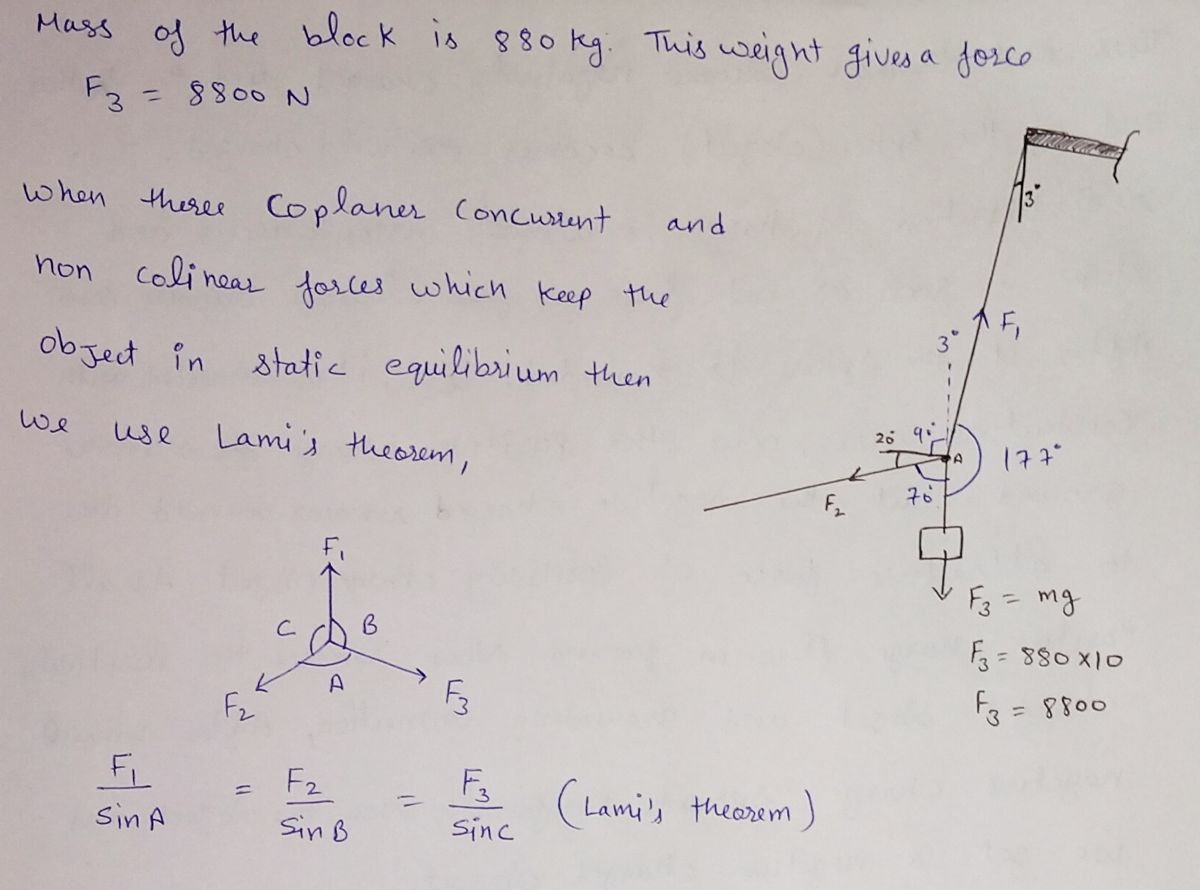 Mass of the block is 880 kg. This weight gives a force
F₃ = 8800 N
when theree Coplaner Concurrent and
non colinear forces which keep the
object in static equilibrium then
we use Lami's theorem,
3°
F₁
3°
20° 90°
A
177°
70°
F₂
F₃ = mg
F₃ = 880 x10
F₃ = 8800
F₁
C B
A
F₂ F₃
F₁/Sin A = F₂/Sin B = F₃/Sin C (Lami's theorem)